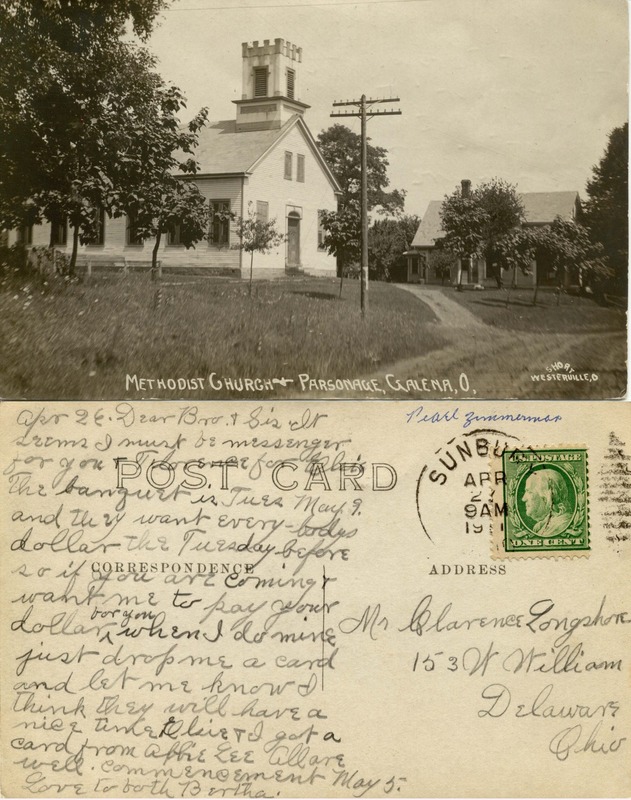 METHODIST CHURCH & PARSONAGE, GALENA, O.
SHOR,
WESTERVILLE, O
Apr 26. Dear Bro. & Sis. It
seems I must be messenger
for you & Florence for
the banquet is Tues May 9.
and they want every-bodys
dollar the Tuesday before
so if you are coming &
want me to pay your
dollar for you when I do mine
just drop me a card
and let me know I
think they will have a
nice time. Elsie & I got a
card from Abbie Lee all are
well. Commencement May 5.
Love to both Bertha.
Pearl Zimmerman
POST CARD
CORRESPONDENCE
ADDRESS
SUNBU
APR
27
9AM
191
U.S. POSTAGE
ONE CENT
Mr Clarence Longshore
153 W William
Delaware
Ohio